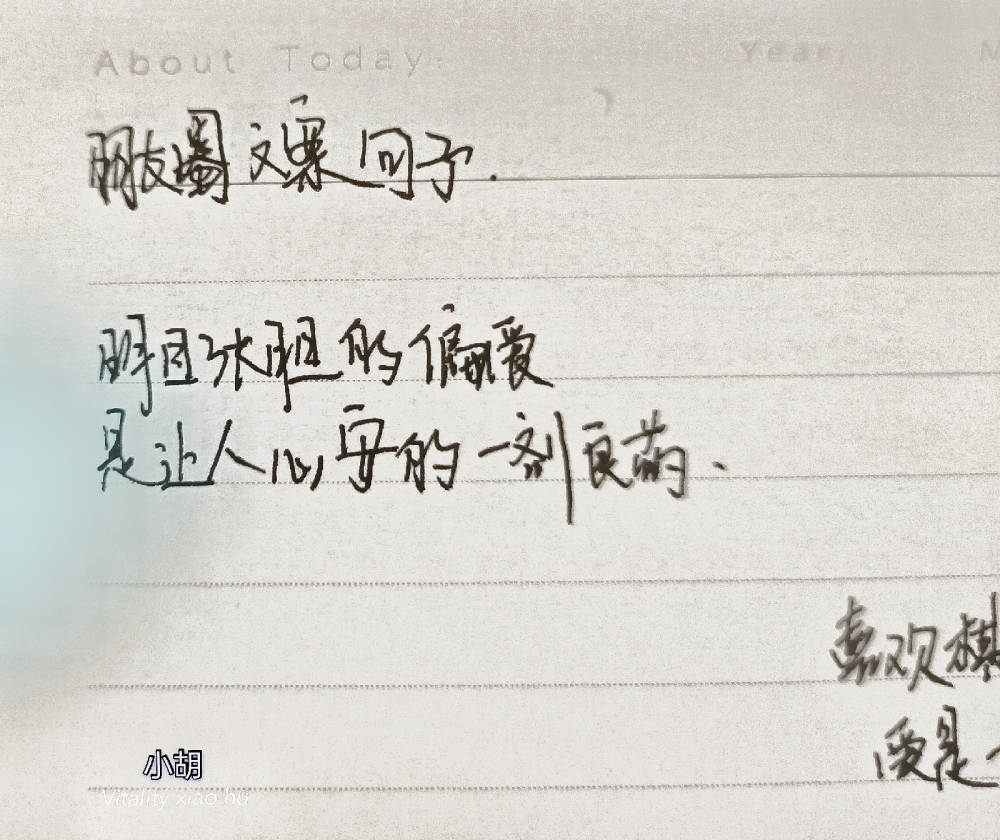 About Today:
Year.
M
朋友圈文案句子.
明目张胆的偏爱
是让人心安的一剂良药.
喜欢横
爱是一
小胡
Vitality xiao hu